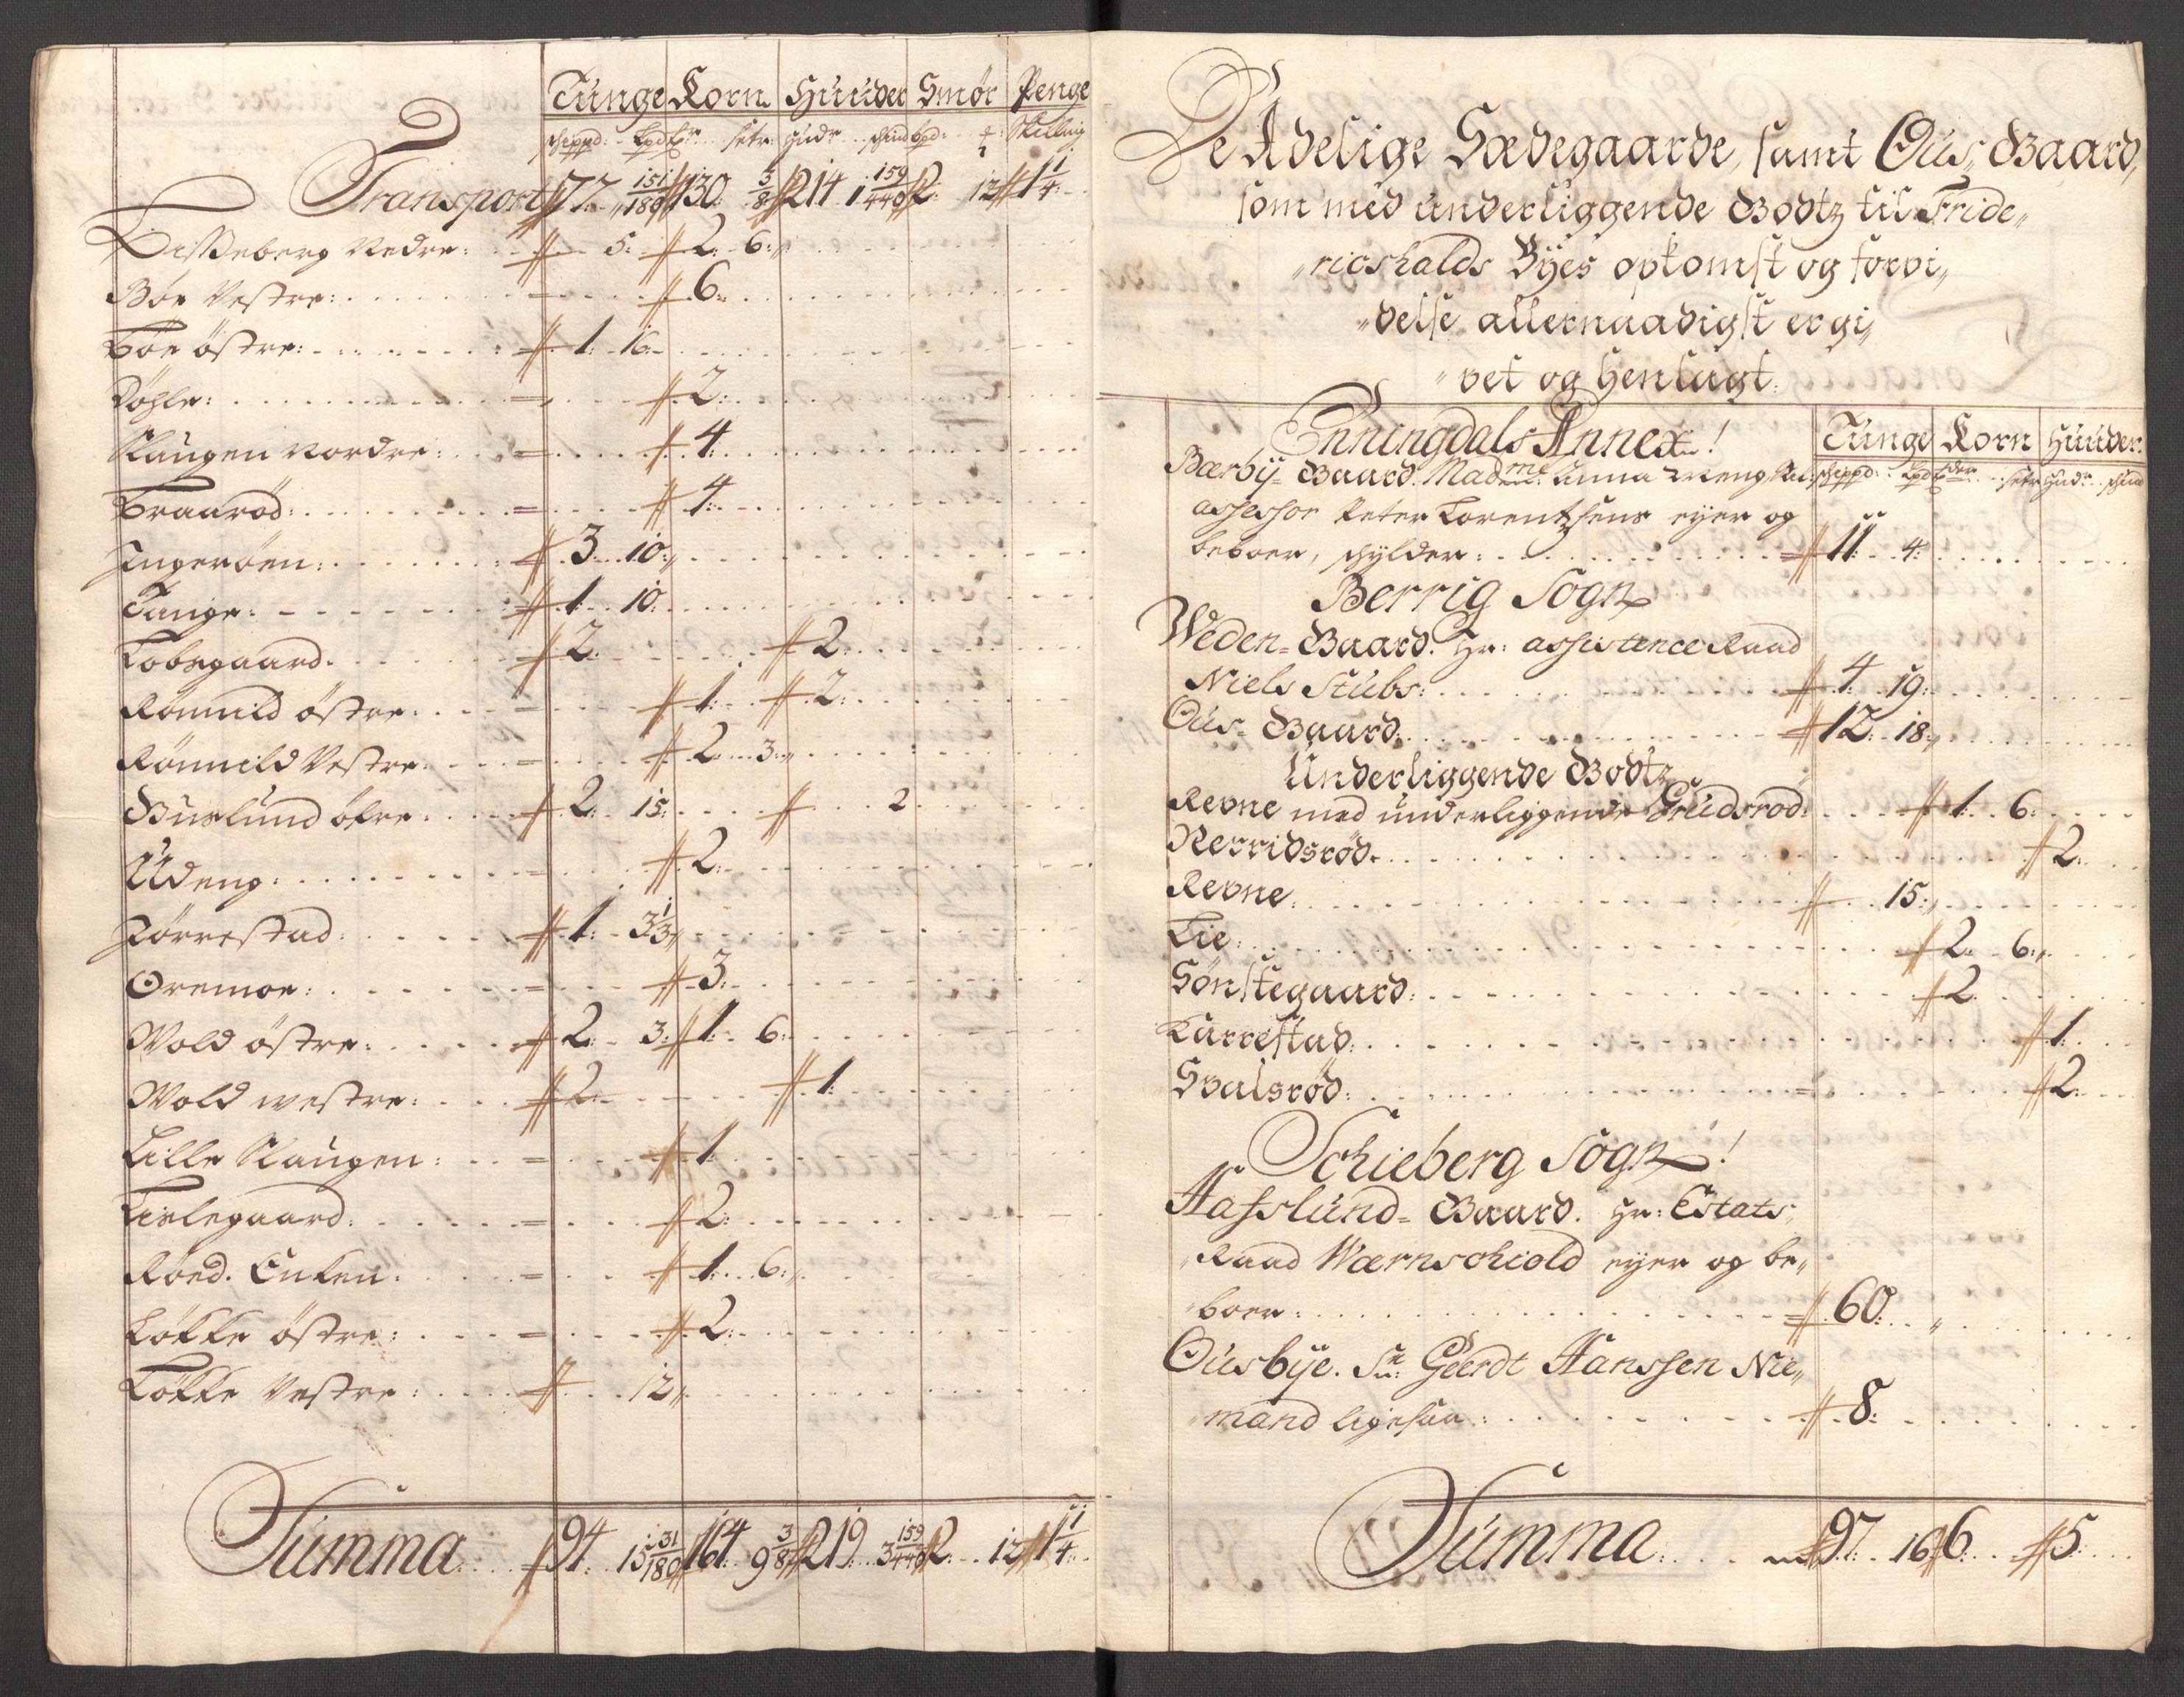 Tunge Korn Huuder Smør Penge
schippd: Lpd tr setr: Hudr schind Lpd: Skilling
Transport 77: „ 151/180 130: 3/8 214 1 159/440 2: 12 1 1/4:
Disseberg Nedre: 5: 2: 6:
Bøe Vestre: 6:
Bøe östre: 1: 16:
Döhle: 2:
Skaugen Nordre: 4:
Braaröd: 4:
Ingeröen: 3: 10:
Tange: 1: 10:
Lobegaard: 2: 2:
Rönneld östre: 1: 2:
Rönneld Vestre: 2: 3:
Buslund öfre: 2: 15: 2
Udeng: 2:
Jörrestad: 1: 3 1/3
Oremoe: 3:
Wold östre: 2: 3: 1: 6:
Wold westre: 2: 1:
Lille Skaugen: 1:
Kirkegaard: 2:
Röed. Enken. 1: 6:
Løkke östre: 2:
Løkke Vestre: 12
Summa: 94: 15 31/180 164: 9 3/8 219: 3 159/440 2: 12 1 1/4:
De Adelige Sædegaarde, samt Ous, Gaard,
som med underliggende Godtz til Fride„
„ricshalds Byes opkomst og forvi„
„delse allernaadigst er gi„
„vet og henlagt.
Enningdals Annex!
Tunge Korn Huuder.
Bærby-Gaard. Madme Anna
schippd: Lpd setr Hudr schind
assessor Peter Lorentzsens eyer og
beboer, schylder: 11: 4:
Berrig Sogn
Weden-Gaard. Hr: assistence Raad
Niels Stubs: 4: 19:
Ous-Gaard. 12: 18:
Underliggende Godtz
Revne med underliggende Grudsrød: 1: 6:
Nerridsrød. 2:
Revne. 15:
Lie: 2: 6:
Sönstegaard: 2
Karrestad: 1:
Svalsrød: 2:
Schieberg Sogn!
Hafslund-Gaard. Hr: Estats„
„Raad Wærnschiold eyer og be„
„boer: 60: „
Ousbye. Sr: Geerdt Hanssen Nie„
„mand ligesaa: 8:
Summa: 97: 16 6: 5: